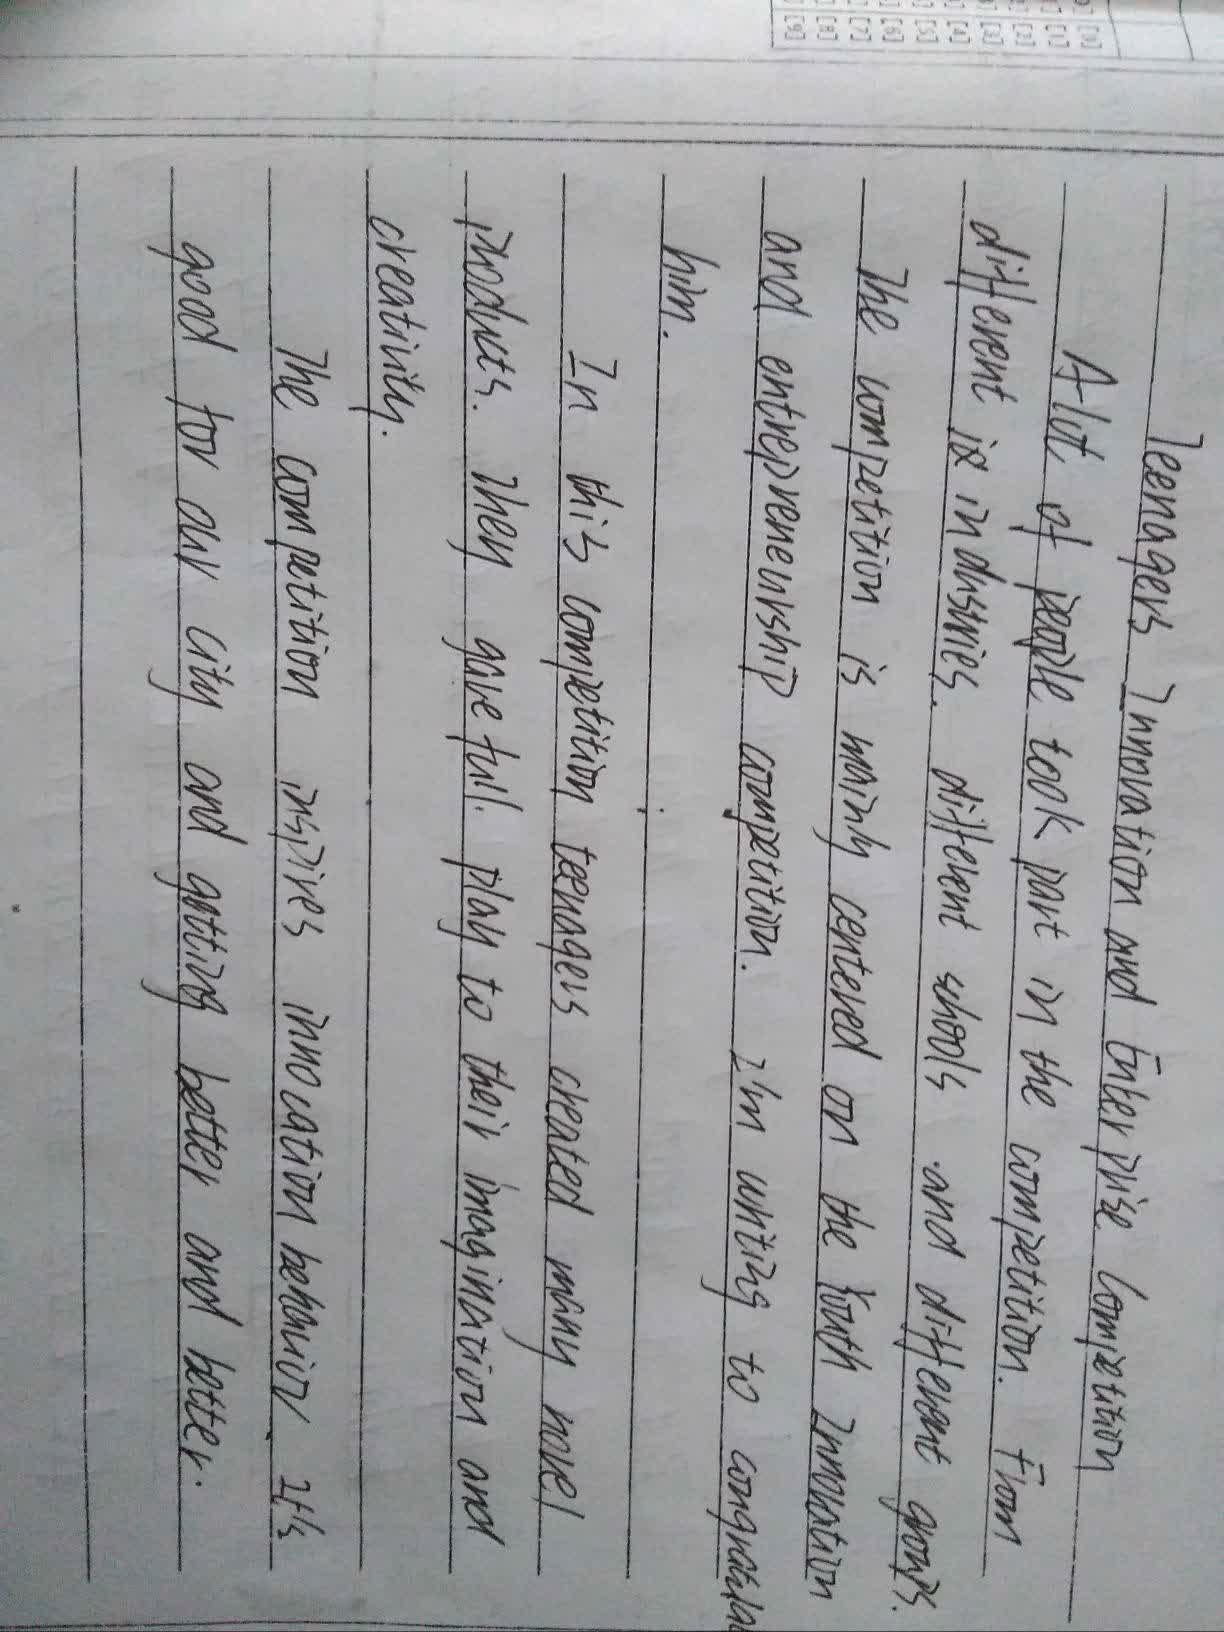 Teenagers Innovation and Enterprise Competition
A lot of people took part in the competition. From
different is industries. different schools and different groups.
The competition is mainly centered on the Youth Innovation
and entrepreneurship competition. I'm writing to congratula
him.
In this competition teenagers created many novel
products. They gave full play to their imagination and
creativity.
The competition inspires innovation behavior. It's
good for our city and getting better and better.
[0] [1] [2] [3] [4] [5] [6] [7] [8] [9]